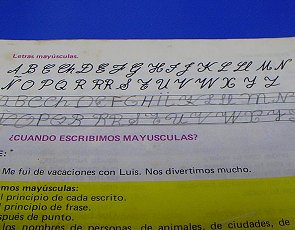 Letras mayúsculas.
A B C Ch D E F G H I J K L Ll M N
Ñ O P Q R RR S T U V W X Y Z
A B C Ch D E F G H I J K L Ll M N
Ñ O P Q R RR S T U V W X Y Z
¿CUANDO ESCRIBIMOS MAYUSCULAS?
E: "
Me fui de vacaciones con Luis. Nos divertimos mucho.
mos mayúsculas:
l principio de cada escrito.
l principio de frase.
spués de punto.
los nombres de personas, de animales, de ciudades, de